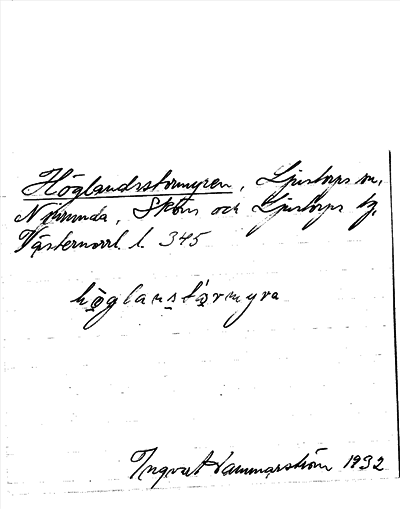 Höglandsstormyren, Ljustorps sn,
Njurunda, Sköns och Ljustorps tg,
Västernorrl. l. 345
höglanstormyra
Ingvar Hammarström 1932